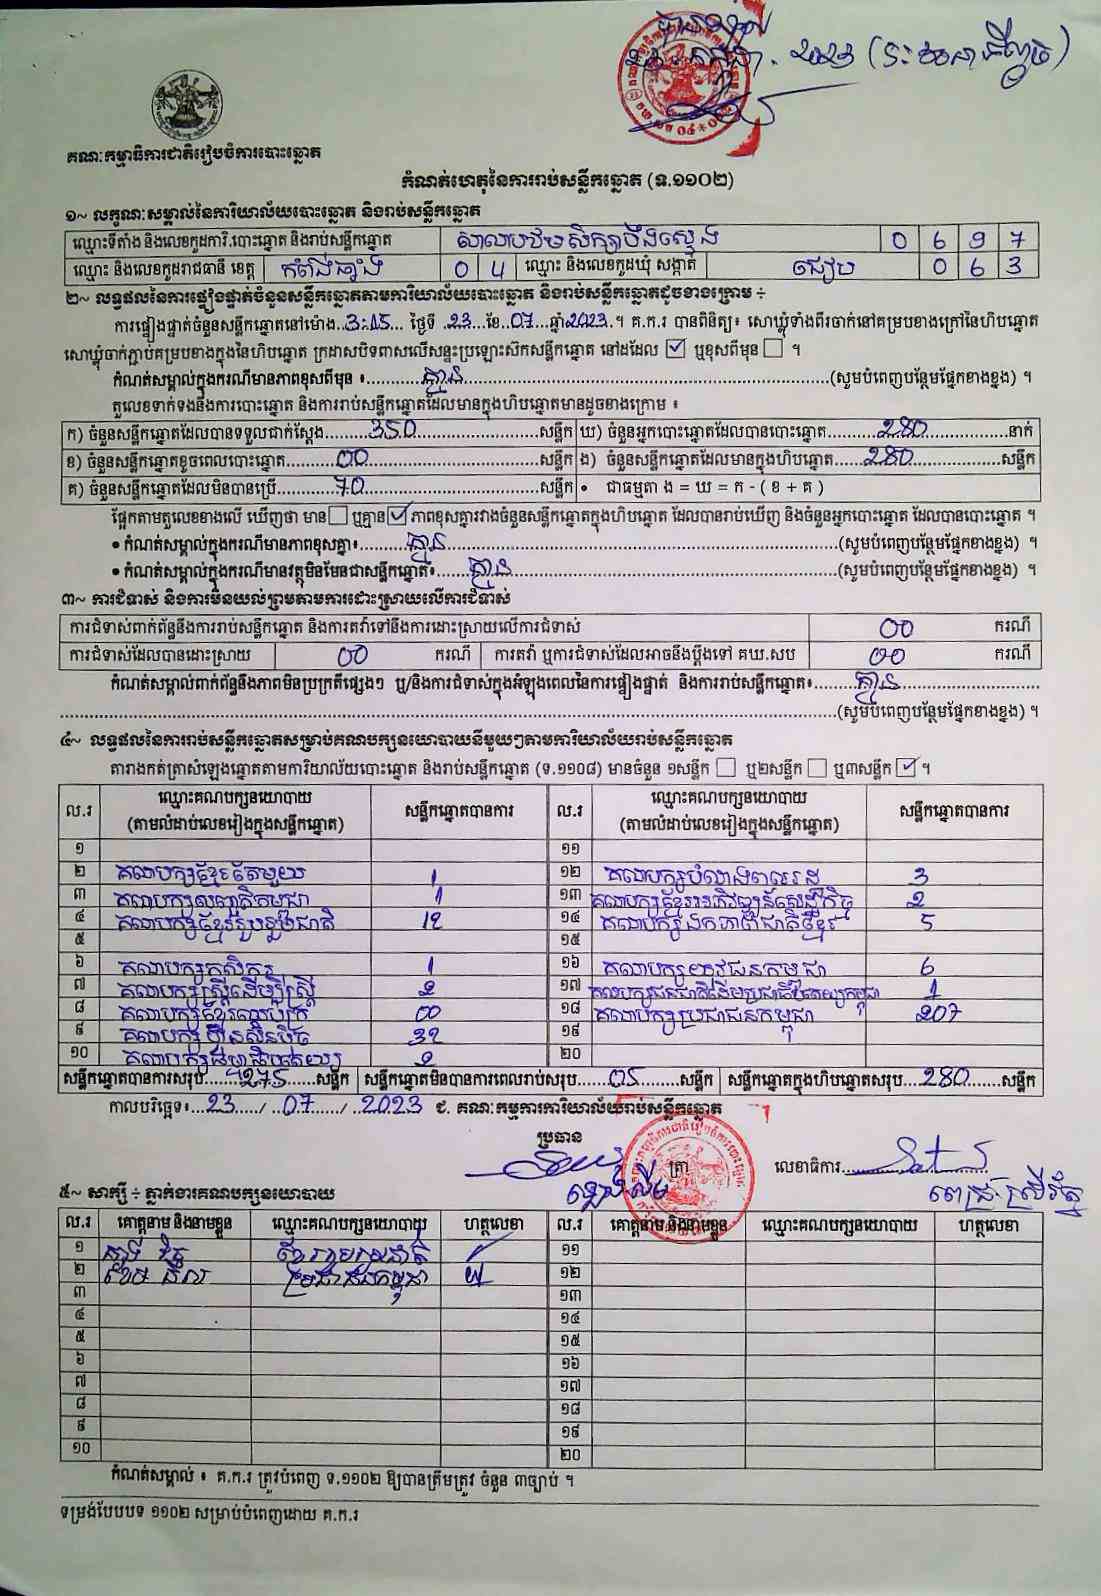 ២០២៣
គណៈកម្មាធិការជាតិរៀបចំការបោះឆ្នោត
កំណត់ហេតុនៃការរាប់សន្លឹកឆ្នោត (ទ.១១០២)
១~ លក្ខណៈសម្គាល់នៃការិយាល័យបោះឆ្នោត និងរាប់សន្លឹកឆ្នោត
ឈ្មោះទីតាំង និងលេខកូដការិ.បោះឆ្នោត និងរាប់សន្លឹកឆ្នោត សាលាបឋមសិក្សាបឹងស្មេង 0 6 9 7
ឈ្មោះ និងលេខកូដរាជធានី ខេត្ត កំពង់ឆ្នាំង 0 4 ឈ្មោះ និងលេខកូដឃុំ សង្កាត់ ជៀប 0 6 3
២~ លទ្ធផលនៃការផ្ទៀងផ្ទាត់ចំនួនសន្លឹកឆ្នោតតាមការិយាល័យបោះឆ្នោត និងរាប់សន្លឹកឆ្នោតដូចខាងក្រោម ÷
ការផ្ទៀងផ្ទាត់ចំនួនសន្លឹកឆ្នោតនៅម៉ោង 3:15 ថ្ងៃទី 23 ខែ 07 ឆ្នាំ 2023 ។ គ.ក.រ បានពិនិត្យ៖ សោឃ្លុំទាំងពីរចាក់នៅគម្របខាងក្រៅនៃហិបឆ្នោត
សោឃ្លុំចាក់ភ្ជាប់គម្របខាងក្នុងនៃហិបឆ្នោត ក្រដាសបិទពាសលើសន្ទះប្រឡោះស៊កសន្លឹកឆ្នោត នៅដដែល ☑ ឬខុសពីមុន ☐ ។
កំណត់សម្គាល់ក្នុងករណីមានភាពខុសពីមុន ៖ គ្មាន (សូមបំពេញបន្ថែមផ្នែកខាងខ្នង) ។
តួលេខទាក់ទងនឹងការបោះឆ្នោត និងការរាប់សន្លឹកឆ្នោតដែលមានក្នុងហិបឆ្នោតមានដូចខាងក្រោម ៖
ក) ចំនួនសន្លឹកឆ្នោតដែលបានទទួលជាក់ស្តែង 350 សន្លឹក ឃ) ចំនួនអ្នកបោះឆ្នោតដែលបានបោះឆ្នោត 280 នាក់
ខ) ចំនួនសន្លឹកឆ្នោតខូចពេលបោះឆ្នោត 00 សន្លឹក ង) ចំនួនសន្លឹកឆ្នោតដែលមានក្នុងហិបឆ្នោត 280 សន្លឹក
គ) ចំនួនសន្លឹកឆ្នោតដែលមិនបានប្រើ 70 សន្លឹក • ជាធម្មតា ង = ឃ = ក - ( ខ + គ )
ផ្អែកតាមតួលេខខាងលើ ឃើញថា មាន ☐ ឬគ្មាន ☑ ភាពខុសគ្នារវាងចំនួនសន្លឹកឆ្នោតក្នុងហិបឆ្នោត ដែលបានរាប់ឃើញ និងចំនួនអ្នកបោះឆ្នោត ដែលបានបោះឆ្នោត ។
• កំណត់សម្គាល់ក្នុងករណីមានភាពខុសគ្នា៖ គ្មាន (សូមបំពេញបន្ថែមផ្នែកខាងខ្នង) ។
• កំណត់សម្គាល់ក្នុងករណីមានវត្ថុមិនមែនជាសន្លឹកឆ្នោត៖ គ្មាន (សូមបំពេញបន្ថែមផ្នែកខាងខ្នង) ។
៣~ ការជំទាស់ និងការមិនយល់ព្រមតាមការដោះស្រាយលើការជំទាស់
ការជំទាស់ពាក់ព័ន្ធនឹងការរាប់សន្លឹកឆ្នោត និងការតវ៉ាទៅនឹងការដោះស្រាយលើការជំទាស់ 00 ករណី
ការជំទាស់ដែលបានដោះស្រាយ 00 ករណី ការតវ៉ា ឬការជំទាស់ដែលអាចនឹងប្តឹងទៅ គឃ.សប 00 ករណី
កំណត់សម្គាល់ពាក់ព័ន្ធនឹងភាពមិនប្រក្រតីផ្សេងៗ ឬ/និងការជំទាស់ក្នុងអំឡុងពេលនៃការផ្ទៀងផ្ទាត់ និងការរាប់សន្លឹកឆ្នោត៖ គ្មាន
(សូមបំពេញបន្ថែមផ្នែកខាងខ្នង) ។
៤~ លទ្ធផលនៃការរាប់សន្លឹកឆ្នោតសម្រាប់គណបក្សនយោបាយនីមួយៗតាមការិយាល័យរាប់សន្លឹកឆ្នោត
តារាងកត់ត្រាសំឡេងឆ្នោតតាមការិយាល័យបោះឆ្នោត និងរាប់សន្លឹកឆ្នោត (ទ.១១០៨) មានចំនួន ១សន្លឹក ☐ ឬ២សន្លឹក ☐ ឬ៣សន្លឹក ☑ ។
ល.រ ឈ្មោះគណបក្សនយោបាយ (តាមលំដាប់លេខរៀងក្នុងសន្លឹកឆ្នោត) សន្លឹកឆ្នោតបានការ ល.រ ឈ្មោះគណបក្សនយោបាយ (តាមលំដាប់លេខរៀងក្នុងសន្លឹកឆ្នោត) សន្លឹកឆ្នោតបានការ
១ ១១
២ គណបក្សខ្មែរតែមួយ 1 ១២ គណបក្សបំណងពលរដ្ឋ 3
៣ គណបក្សសញ្ជាតិកម្ពុជា 1 ១៣ គណបក្សខ្មែរអភិវឌ្ឍន៍សេដ្ឋកិច្ច 2
៤ គណបក្សខ្មែររួបរួមជាតិ 12 ១៤ គណបក្សឯកភាពជាតិខ្មែរ 5
៥ ១៥
៦ គណបក្សកសិករ 1 ១៦ គណបក្សយុវជនកម្ពុជា 6
៧ គណបក្សស្ត្រីដើម្បីស្ត្រី 2 ១៧ គណបក្សជនជាតិដើមប្រជាធិបតេយ្យកម្ពុជា 1
៨ គណបក្សខ្មែរឈប់ក្រ 00 ១៨ គណបក្សប្រជាជនកម្ពុជា 207
៩ គណបក្សហ៊្វុនស៊ិនប៉ិច 32 ១៩
១០ គណបក្សធម្មាធិបតេយ្យ 2 ២០
សន្លឹកឆ្នោតបានការសរុប 275 សន្លឹក សន្លឹកឆ្នោតមិនបានការពេលរាប់សរុប 05 សន្លឹក សន្លឹកឆ្នោតក្នុងហិបឆ្នោតសរុប 280 សន្លឹក
កាលបរិច្ឆេទ៖ 23 / 07 / 2023 ជ. គណៈកម្មការការិយាល័យរាប់សន្លឹកឆ្នោត
ប្រធាន ត្រា លេខាធិការ
៥~ សាក្សី ÷ ភ្នាក់ងារគណបក្សនយោបាយ
ល.រ គោត្តនាម និងនាមខ្លួន ឈ្មោះគណបក្សនយោបាយ ហត្ថលេខា ល.រ គោត្តនាម និងនាមខ្លួន ឈ្មោះគណបក្សនយោបាយ ហត្ថលេខា
១ ខ្មែររួបរួមជាតិ ១១
២ ប្រជាជនកម្ពុជា ១២
៣ ១៣
៤ ១៤
៥ ១៥
៦ ១៦
៧ ១៧
៨ ១៨
៩ ១៩
១០ ២០
កំណត់សម្គាល់ ៖ គ.ក.រ ត្រូវបំពេញ ទ.១១០២ ឱ្យបានត្រឹមត្រូវ ចំនួន ៣ច្បាប់ ។
ទម្រង់បែបបទ ១១០២ សម្រាប់បំពេញដោយ គ.ក.រ